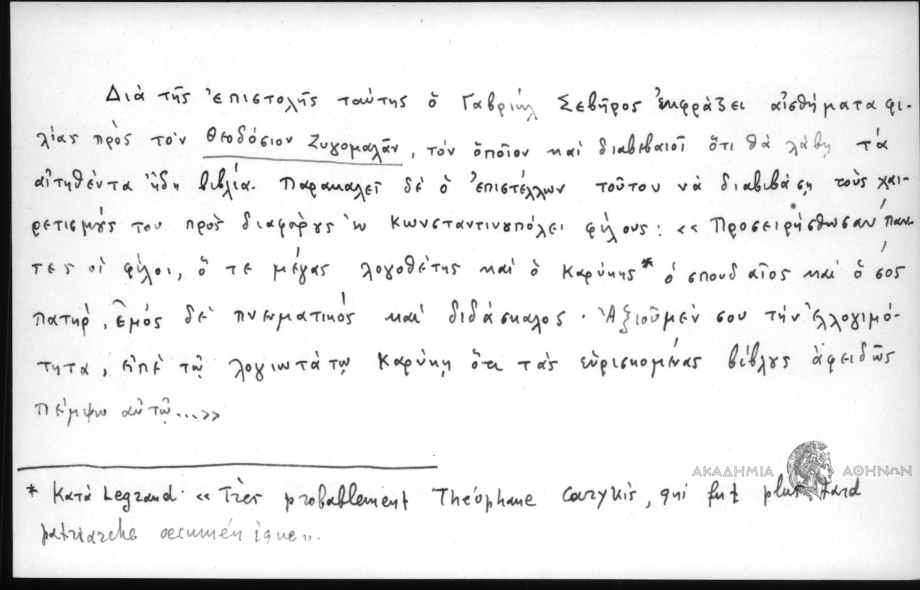 Διὰ τῆς ἐπιστολῆς ταύτης ὁ Γαβριὴλ Σεβῆρος ἐκφράζει αἰσθήματα φι-
λίας πρὸς τὸν Θεοδόσιον Ζυγομαλᾶν, τὸν ὁποῖον καὶ διαβεβαιοῖ ὅτι θὰ λάβῃ τὰ
αἰτηθέντα ἤδη βιβλία. Παρακαλεῖ δὲ ὁ ἐπιστέλλων τοῦτον νὰ διαβιβάσῃ τοὺς χαι-
ρετισμούς του πρὸς διαφόρους ἐν Κωνσταντινουπόλει φίλους: «Προσειρήσθωσαν πάν-
τες οἱ φίλοι, ὅ τε μέγας λογοθέτης καὶ ὁ Καρύκης* ὁ σπουδαῖος καὶ ὁ σὸς
πατήρ, ἐμὸς δὲ πνευματικὸς καὶ διδάσκαλος. Ἀξιοῦμέν σου τὴν ἐλλογιμό-
τητα, εἰπὲ τῷ λογιωτάτῳ Καρύκῃ ὅτι τὰς εὑρισκομένας βίβλους ἀφειδῶς
πέμψω αὐτῷ...»
ΑΚΑΔΗΜΙΑ ΑΘΗΝΩΝ
* Κατὰ Legrand: «Très probablement Théophane Carykis, qui fut plus tard
patriarche oecuménique».